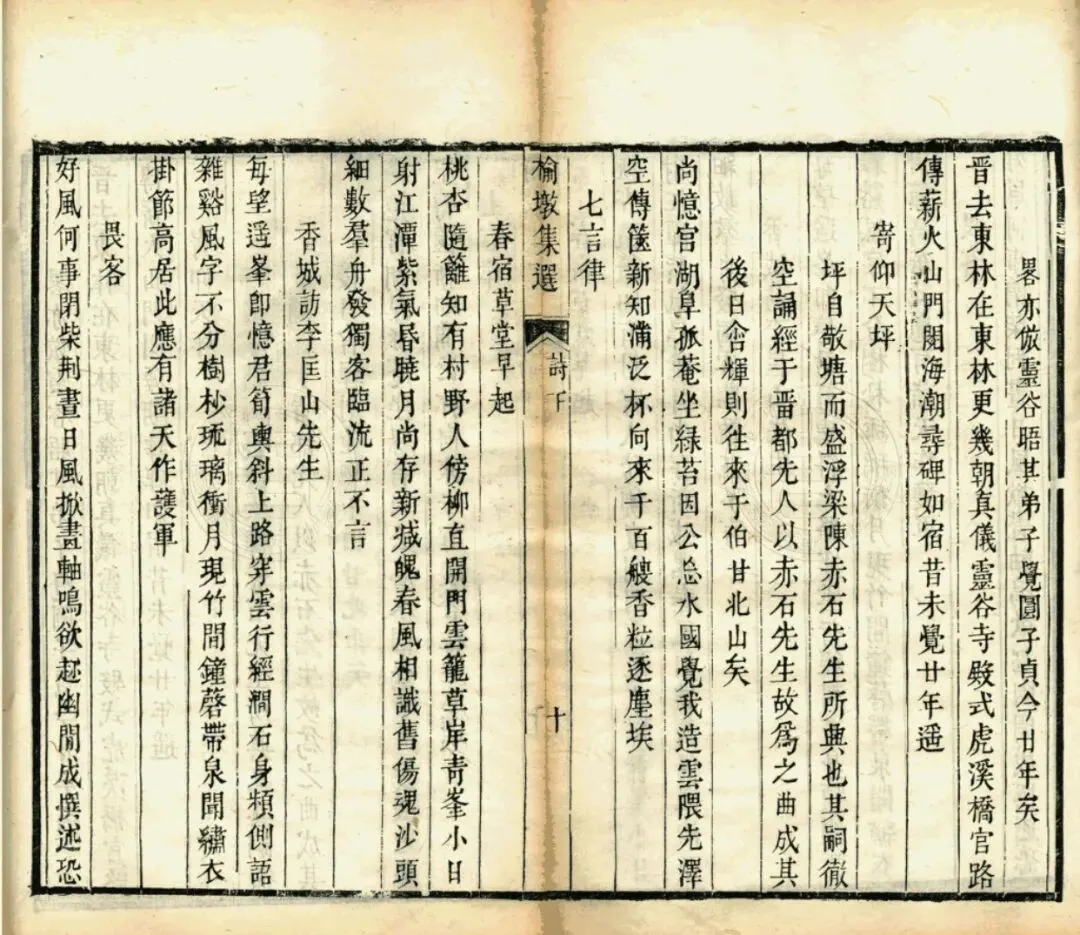 畧亦倣靈谷晤其弟子覺圓子貞今廿年矣
晋去東林在東林更幾朝真儀靈谷寺殿式虎溪橋官路
傳薪火山門閱海潮尋碑如宿昔未覺廿年遥
寄仰天坪
坪自敬塘而盛浮梁陳赤石先生所典也其嗣徹
空誦經于晋都先人以赤石先生故爲之曲成其
後日含輝則往來于伯甘北山矣
尚憶宫湖阜孤菴坐緑苔因公忩水國覺我造雲隈先澤
空傳篋新知滿泛杯向來千百艘香粒逐塵埃
七言律
榆墩集選
詩下
十
春宿草堂早起
桃杏隨籬知有村野人傍柳直開門雲籠草岸青峯小日
射江潭紫氣昬曉月尚存新減魄春風相識舊傷魂沙頭
細數羣舟發獨客臨流正不言
香城訪李匡山先生
每望遥峯卽憶君筍輿斜上路穿雲行經澗石身頻側語
雜谿風字不分樹杪琉璃衝月現竹間鐘磬帶泉聞繡衣
掛節高居此應有諸天作護軍
畏客
好風何事閉柴荆晝日風掀畫軸鳴欲趂幽閒成撰述恐